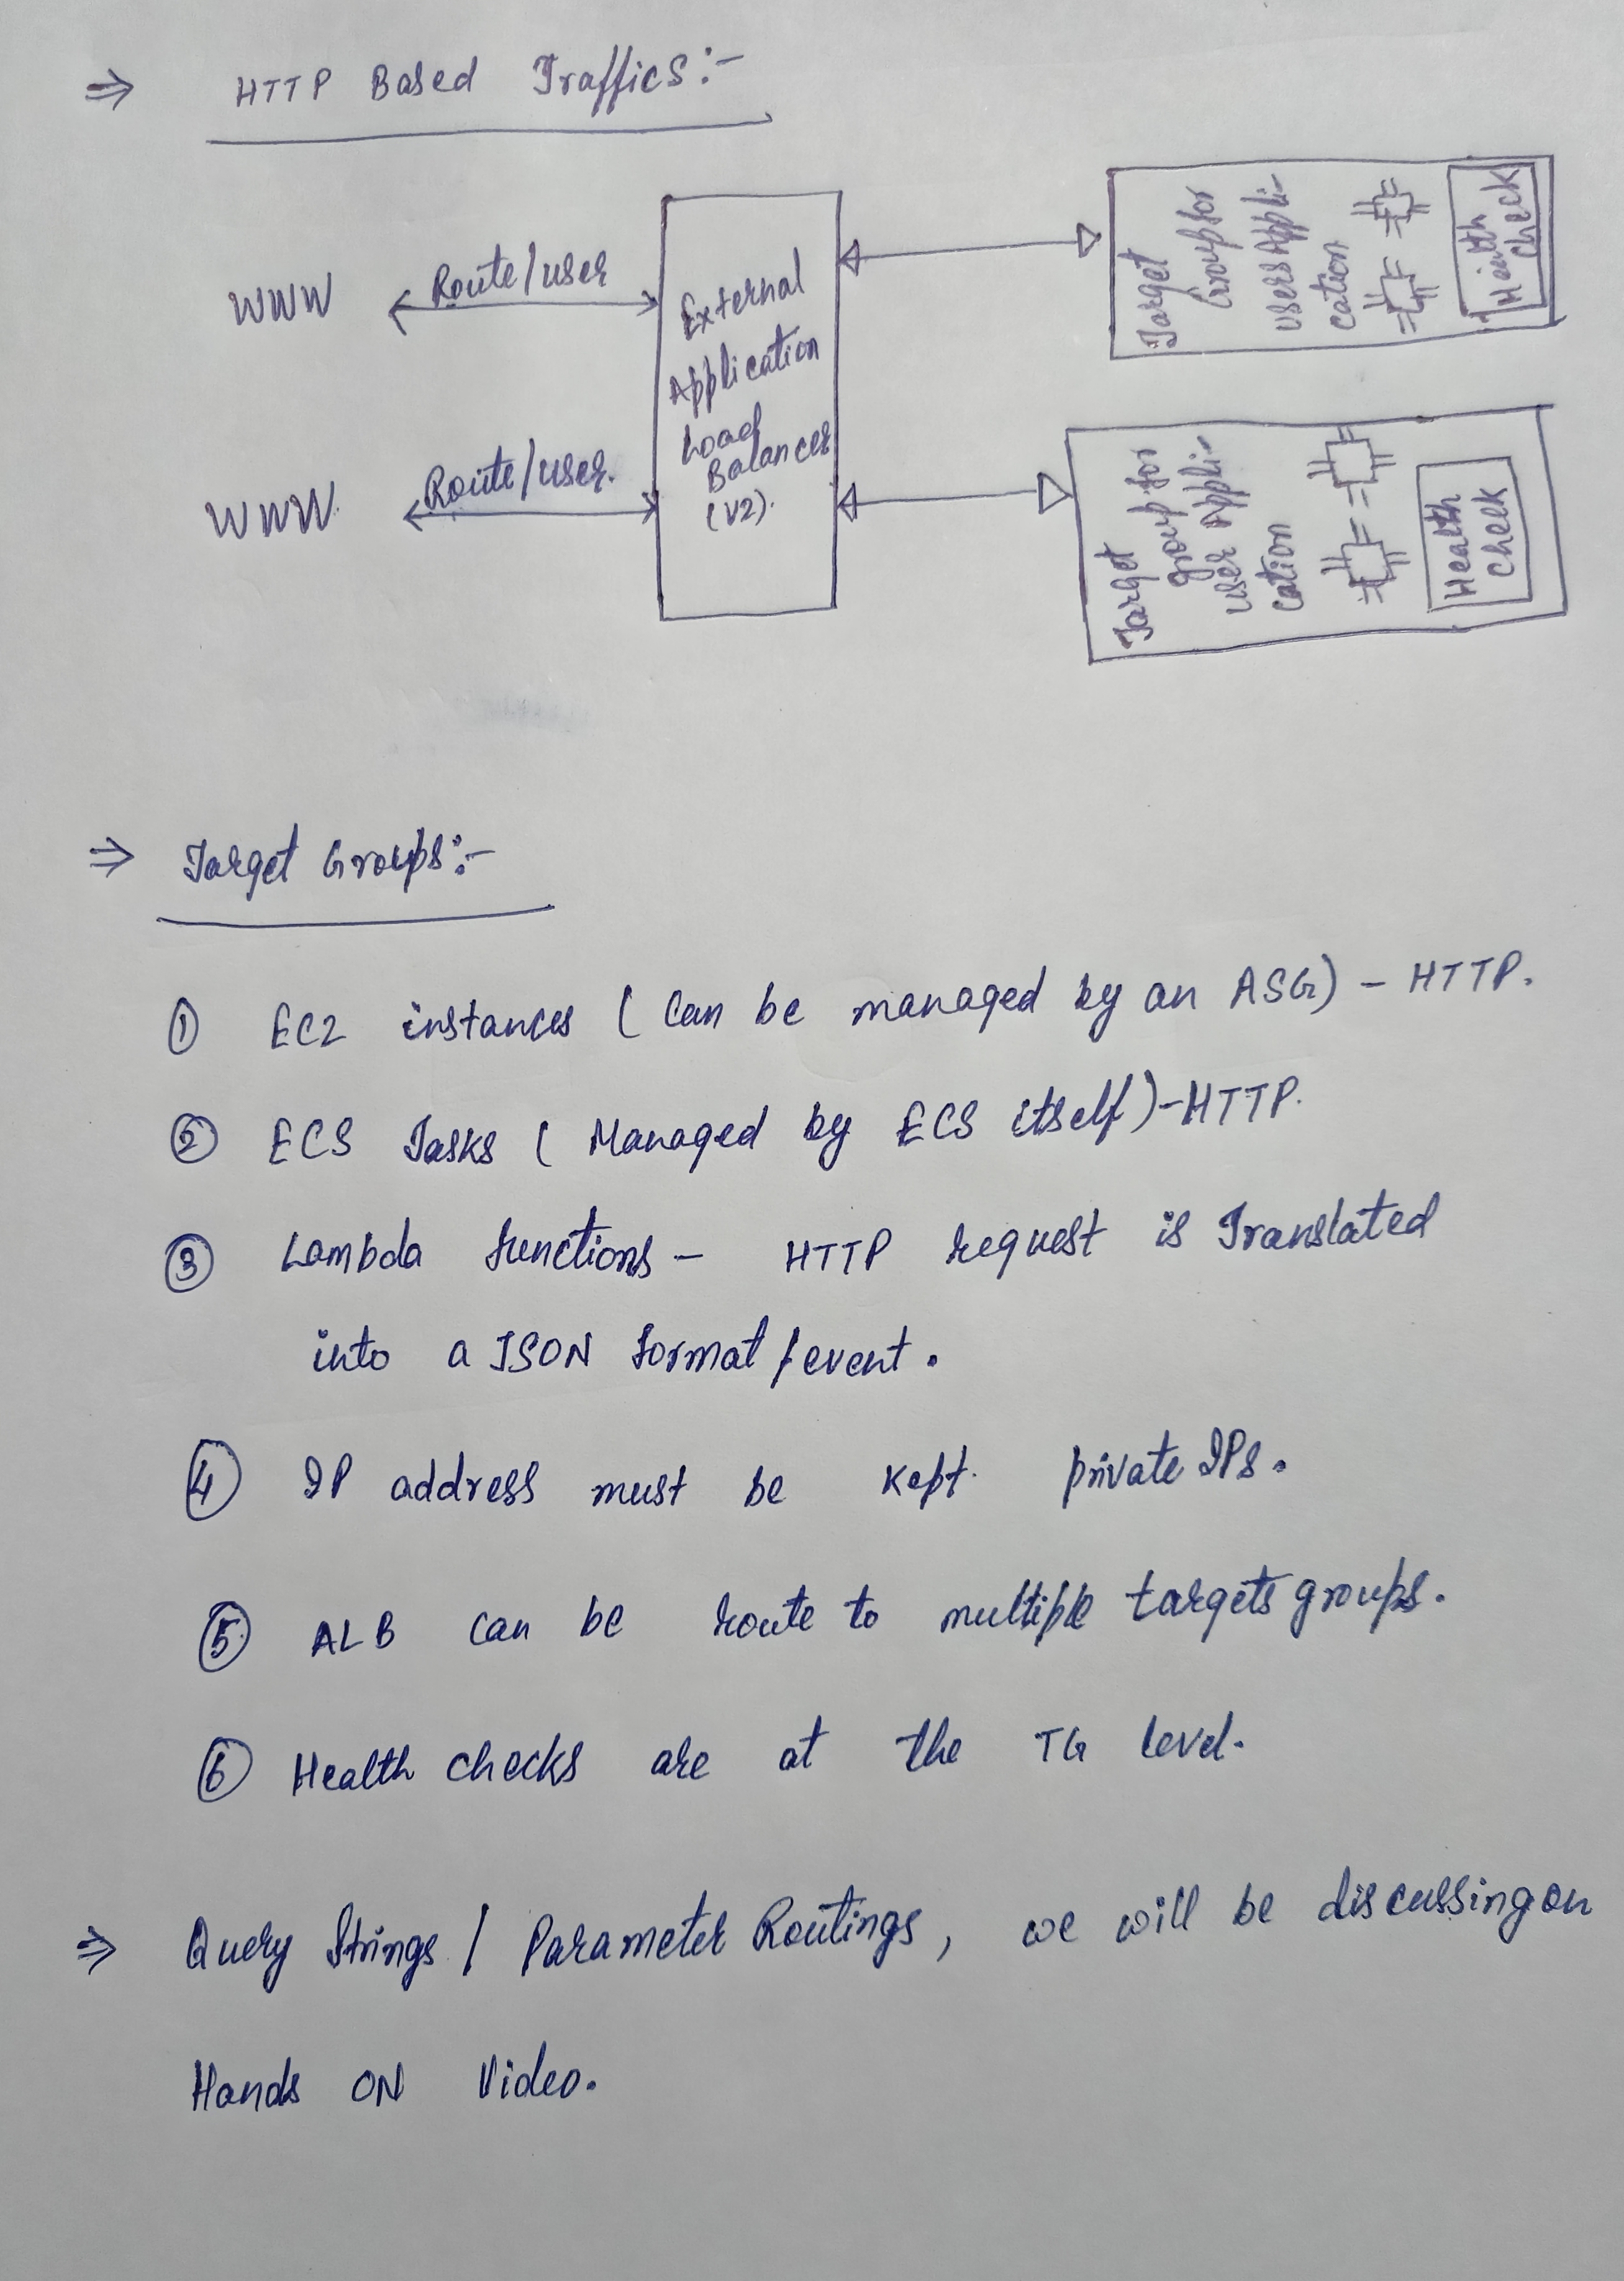 ⇒ HTTP Based Traffics:-
WWW
Route/user
WWW.
Route/user.
External
Application
Load
Balancer
(V2).
Target
Group for
users Appli-
cation
Health
Check
Target
group for
user Appli-
cation
Health
Check
⇒ Target Groups:-
① EC2 instances ( Can be managed by an ASG) - HTTP.
② ECS Tasks ( Managed by ECS itself)-HTTP.
③ Lambda functions - HTTP request is Translated
into a JSON format / event.
④ IP address must be Kept. private IPs.
⑤ ALB can be route to multiple targets groups.
⑥ Health checks are at the TG level.
⇒ Query Strings / Parameter Routings, we will be discussing on
Hands ON Video.